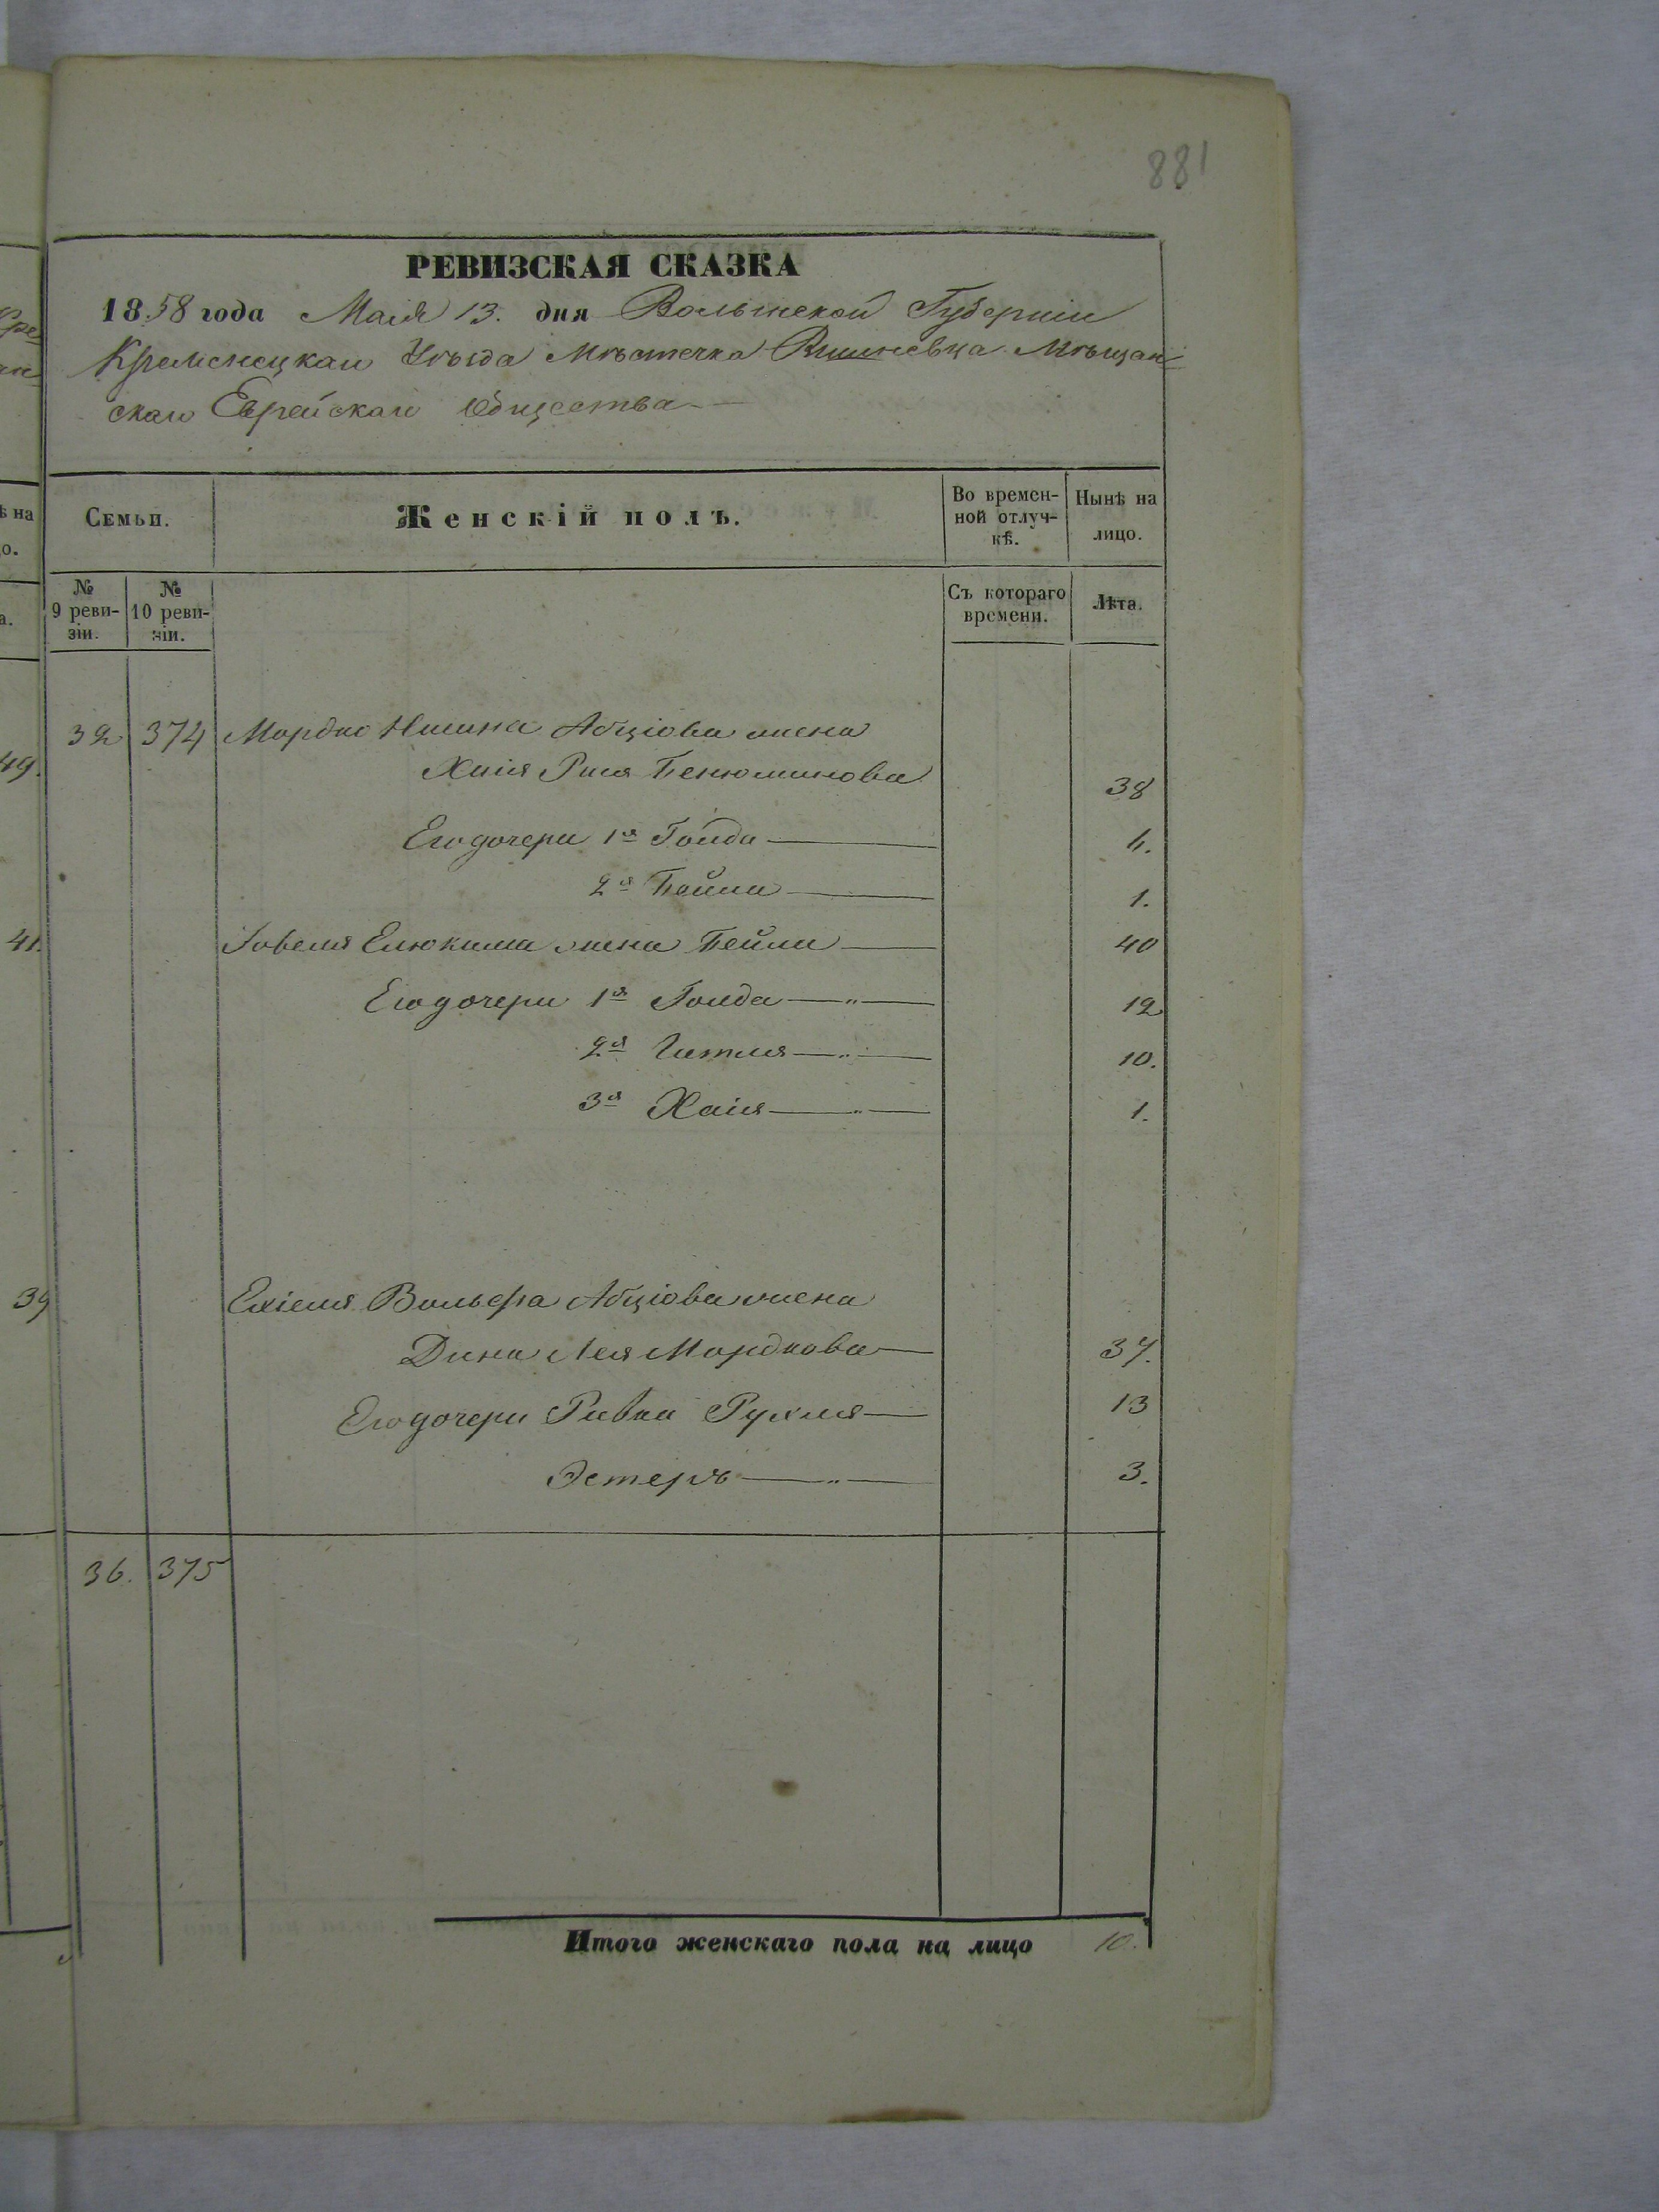 881
РЕВИЗСКАЯ СКАЗКА
1858 года Маія 13. дня Волынской Губерніи
Кременецкаго Уѣзда Мѣстечка Вишневца Мѣщан
скаго Еврейскаго Общества
Семьи.
Женскій полъ.
Во времен-
ной отлуч-
кѣ.
Нынѣ на
лицо.
№
9 реви-
зіи.
№
10 реви-
зіи.
Съ котораго
времени.
Лѣта.
32 374 Мордко Нисина Абціова жена
Хаія Бенюминова 38
Его дочери 1я Голда 4.
2я Бейла 1.
Елюкима жена Бейла 40
Его дочери 1я Голда — " — 12
2я Гитля — " — 10.
3я Хаія — " — 1.
Ехіеля Вольфа Абціова жена
Дина Лея Мордкова 37.
Его дочери Ривка Рухля 13
Эстеръ — " — 3.
36. 375
Итого женскаго пола на лицо 10.
49.
41.
39